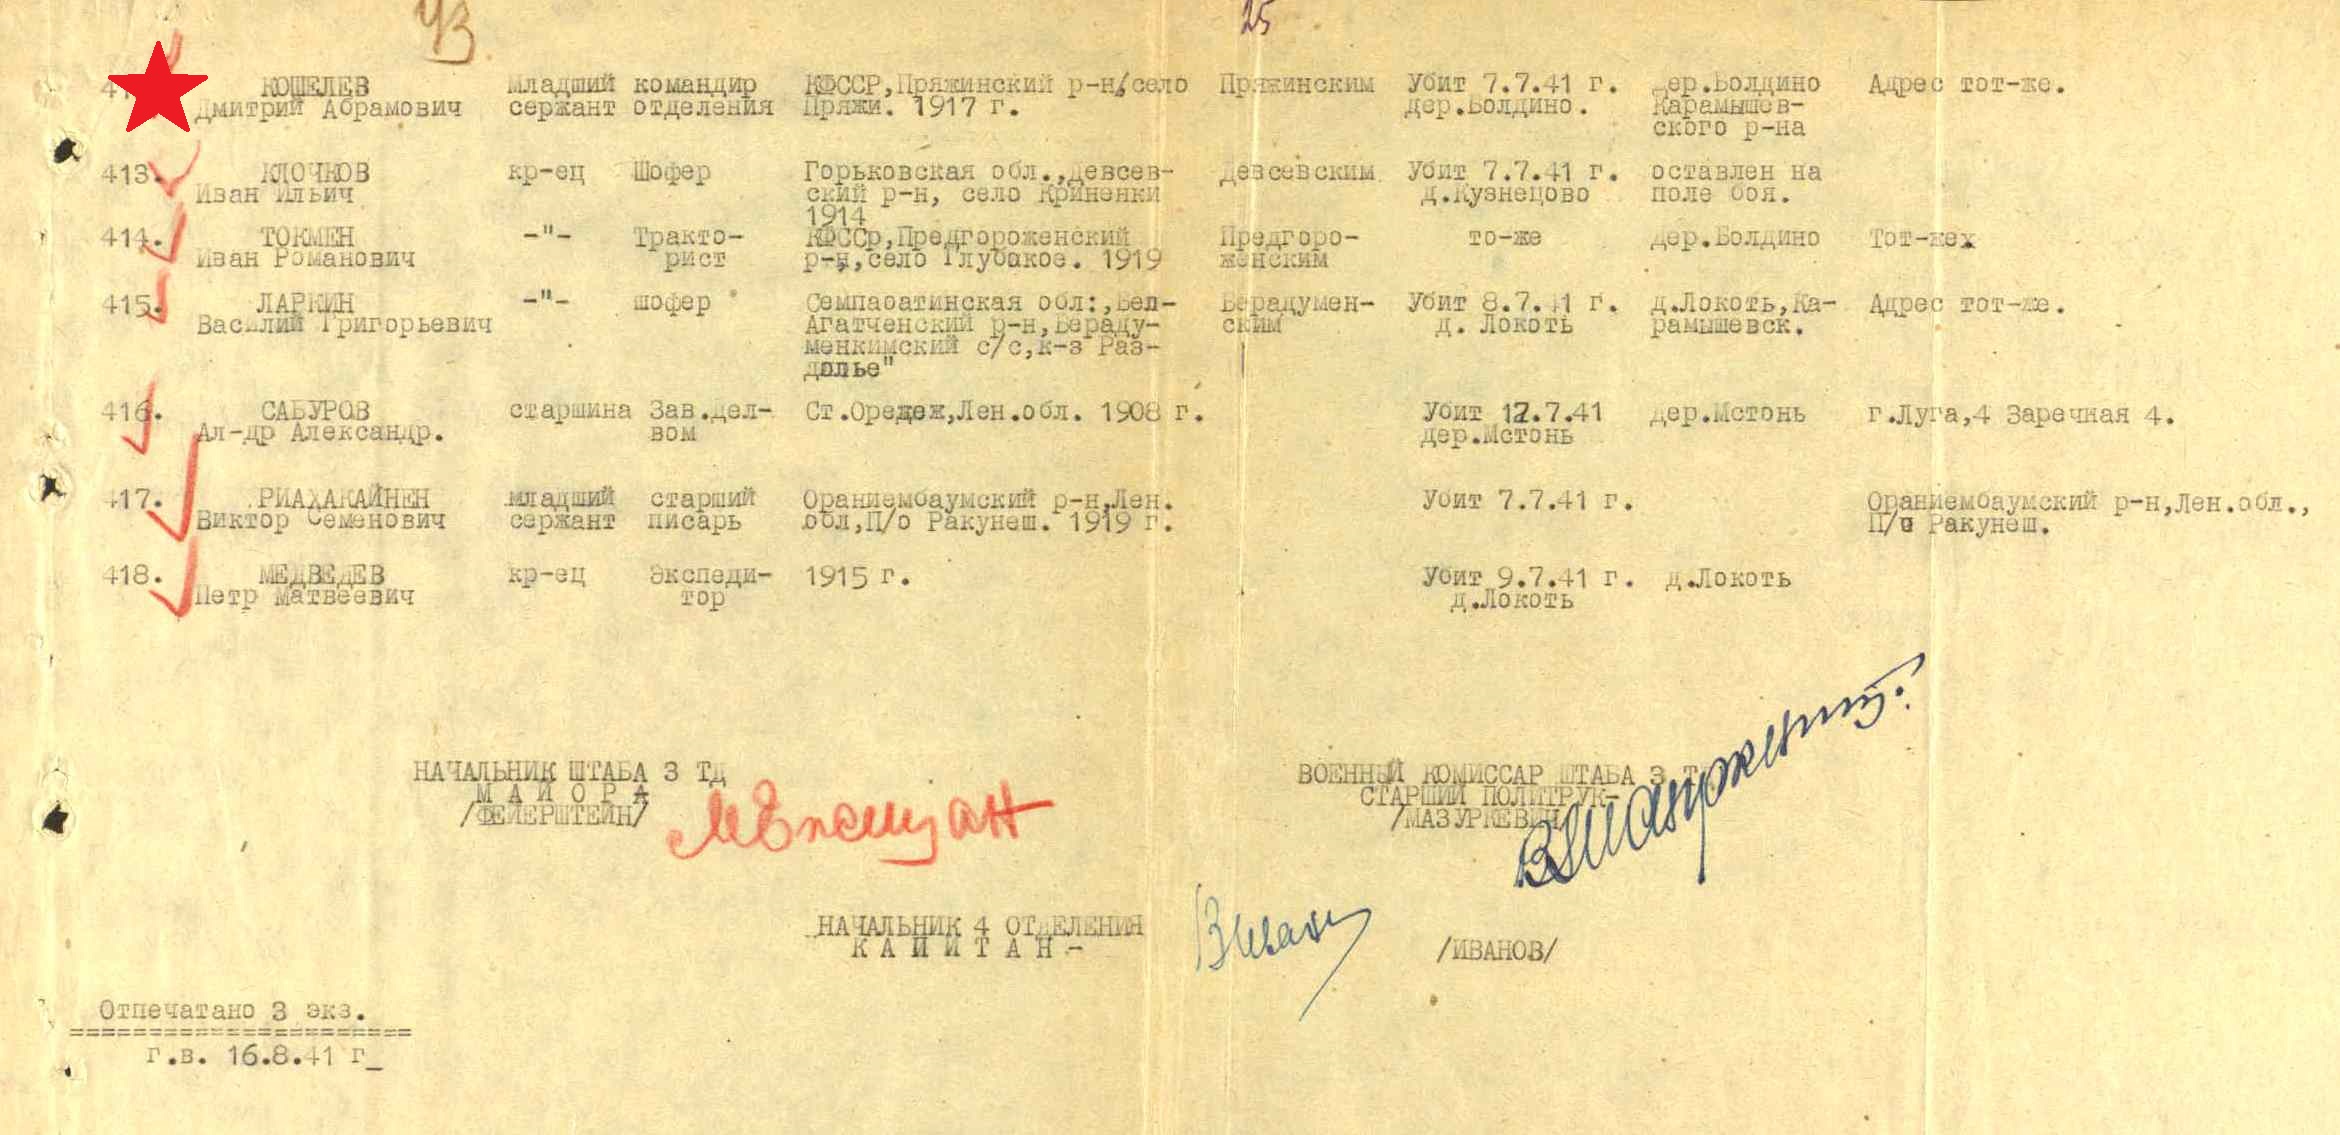 43
25
4 КОШЕЛЕВ Младший командир КФССР,Пряжинский р-н,село Пряжинским Убит 7.7.41 г. дер.Болдино Адрес тот-же.
Дмитрий Абрамович сержант отделения Пряжи. 1917 г. дер.Болдино. Карамышев-
ского р-на
413. КЛОЧКОВ кр-ец Шофер Горьковская обл.,Девсев- Девсевским Убит 7.7.41 г. оставлен на
Иван Ильич ский р-н, село Криненки д.Кузнецово поле боя.
1914
414. ТОКМЕН -"- Тракто- КФССр,Предгороженский Предгоро- то-же дер.Болдино Тот-жех
Иван Романович рист р-н,село Глубокое. 1919 женским
415. ЛАРКИН -"- шофер Семпаоатинская обл:,Бел- Берадумен- Убит 8.7.41 г. д.Локоть,Ка- Адрес тот-же.
Василий Григорьевич Агатченский р-н,Бераду- ским д. Локоть рамышевск.
менкимский с/с,к-з Раз-
долье"
416. САБУРОВ старшина Зав.дел- Ст.Оредеж,Лен.обл. 1908 г. Убит 12.7.41 дер.Мстонь г.Луга,4 Заречная 4.
Ал-др Александр. вом дер.Мстонь
417. РИАХАКАЙНЕН младший старший Ораниембаумский р-н,Лен. Убит 7.7.41 г. Ораниембаумский р-н,Лен.обл.,
Виктор Семенович сержант писарь обл,П/о Ракунеш. 1919 г. П/о Ракунеш.
418. МЕДВЕДЕВ кр-ец Экспеди- 1915 г. Убит 9.7.41 г. д.Локоть
Петр Матвеевич тор д.Локоть
НАЧАЛЬНИК ШТАБА 3 ТД ВОЕННЫЙ КОМИССАР ШТАБА 3 ТД
МАЙОРА СТАРШИЙ ПОЛИТРУК-
/ФЕЙЕРШТЕЙН/ /МАЗУРКЕВИЧ/
НАЧАЛЬНИК 4 ОТДЕЛЕНИЯ
КАПИТАН- /ИВАНОВ/
Отпечатано 3 экз.
г.в. 16.8.41 г_